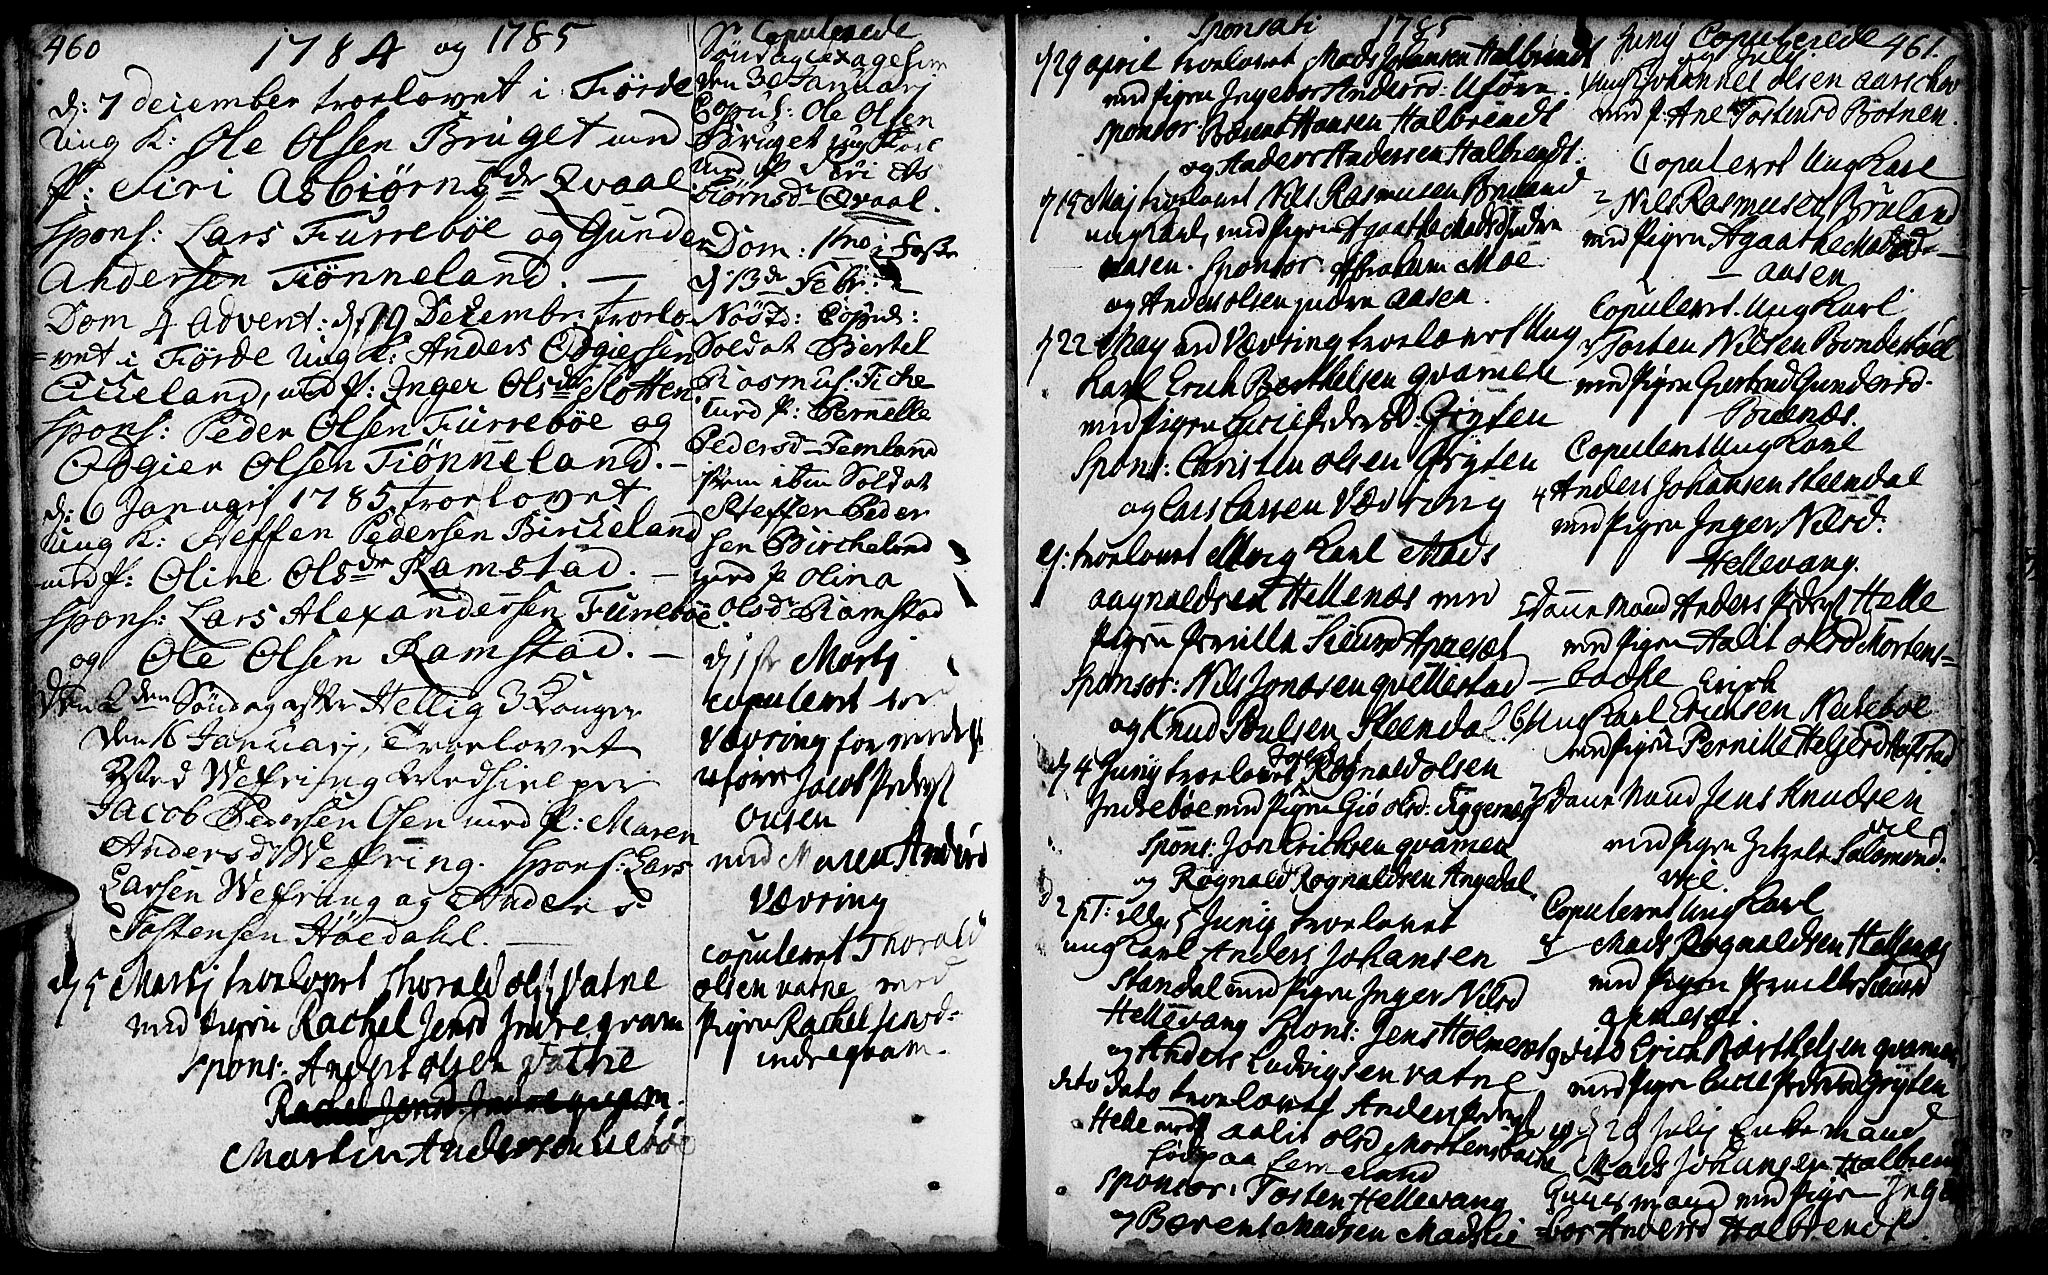 460
1784 og 1785
d: 7 december troelovet i Förde
Ung K: Ole Olsen Bruget med
P: Siri Asbiørnsdr Qvaal
Spons: Lars Furreböe og Gunder
Andersen Tiønneland. —
Dom 4 Advent: d: 19 Decembr: troelo-
=vet i Förde Ung K: Anders Odgiersen
Eickeland, med P: Inger Olsdr Slotten
Spons: Peder Olsen Furreböe og
Odgier Olsen Tiønneland. —
d: 6 Januarij 1785 troelovet
Ung K: Steffen Pedersen Birckeland
med P: Oline Olsdr Ramstad. —
Spons: Lars Alexandersen Furreböe
og Ole Olsen Ramstad. —
Den 2den Söndag efter Hellig 3 Konger
den 16 Januarij, Troelovet
Wed Wefring Medhielper
Jacob Pedersen Osen med P: Maren
Andersdr Wefring. Spons: Lars
Larsen Wefring og Anders
Tostensen Höedahl. —
d 5 Martij troelovet Thorald ols: Vatne
med Pigen Rachel Jensd Indre qvam
Spons: Anders olsen Vatne
Rachel Jensd Indre qvam.
Martin Andersen
Copulerede
Söndag Sexagesim
den 30 Januarij
Copul: Ole Olsen
Bruget ung Karl
med P Siri As
biörnsdr Qvaal.
Dom: 1mo i Faste
d: 13de Febr:
Nöstd: Copul:
Soldat Bertel
Rasmus: Tiche
med P: Pernelle
Pedersd Femland
item Soldat
Steffen Peder
sen Birckeland
med P Olina
Olsdr Ramstad
d 1ste Martij
copuleret ved
Vævring formedelst
uföre Jacob Peders:
Ousen
med Maren Andersd
Vævring
copuleret Thorald
olsen vatne med
Pigen Rachel Jensd=
indreqvam.
Sponsati 1785
d 29 april troelovet Mads Johansen Halbrendt
med Pigen Ingebor Andersd:
sponsor Bærent Hansen Halbrendt
og Anders Andersen Halbrendt.
d 15 Maj troelovet Nils Rasmusen Bruland
ung karl, med Pigen Agaathe Madsd indre
aasen. Sponsor: Abraham Moe
og Anders olsen indre aasen.
d 22 May ved Vævring troelovet Ung
Karl Erich Barthelsen qvamen
med Pigen Lucie Pedersd: Gryten
Spons: Christen olsen Gryten
og Lars Larsen Vævring
ej. troelovet Ung Karl Mads
aagnaldsen Hellenæs med
Pigen Pernilla Siursd
Sponsor: Nils Jonasen qvellestad —
og Knud Poulsen Steendal
d 4 Junij troelovet Rognald olsen
Indrebøe med Pigen Giø olsd:
Spons: Jon Erichsen qvamen
og Rognald Rognaldsen Angedal
d 2 pT: 5 Junij troelovet
ung Karl Anders Johansen
Standal med Pigen Inger Nilsd
Hellevang Spons: Jens Holmeset
og Anders Ludvigsen vatne
dito dato troelovet Anders Peders:
Helle med P aalit olsd Mortensbache
föed paa Lemeland
Sponsor: Tosten Hellevang
og Bærent Madsen Madslie
461.
Junij Copulerede
og Julij
Ung K Johannes olsen aarschou
med P: Ane Tostensd Botnen.
Copuleret Ung Karl
2 Nils Rasmusen Bruland
med Pigen Agaathe Madsd=
— aasen
Copuleret Ung Karl
Tosten Nilsen
med Pigen Giertrud Gundersd.
Copuleret Ung Karl
4 Anders Johansen Steendal
med Pigen Inger Nilsd:
Hellevang.
5 Danne Mand Anders Peders: Helle
med Pigen Aalit olsd Mortens=
bache Erich
6 Ung Karl Ericksen
med Pigen Pernille Heljesd Hafstad
7 Danne Mand Jens Knudsen
vie
med Pigen Salomonsd:
vie.
Copuleret Ung Karl
8 Mads Rognaldsen Hellenæs
med Pigen Pernille Siursd
9 dito Erich Barthelsen qvamen
med Pigen Lucie Pedersd Gryten
10 d 28 Julij Enkemand
Mads Johansen Halbrend
Gaardmand med Pigen Inge
=bor Andersd Halbrendt.